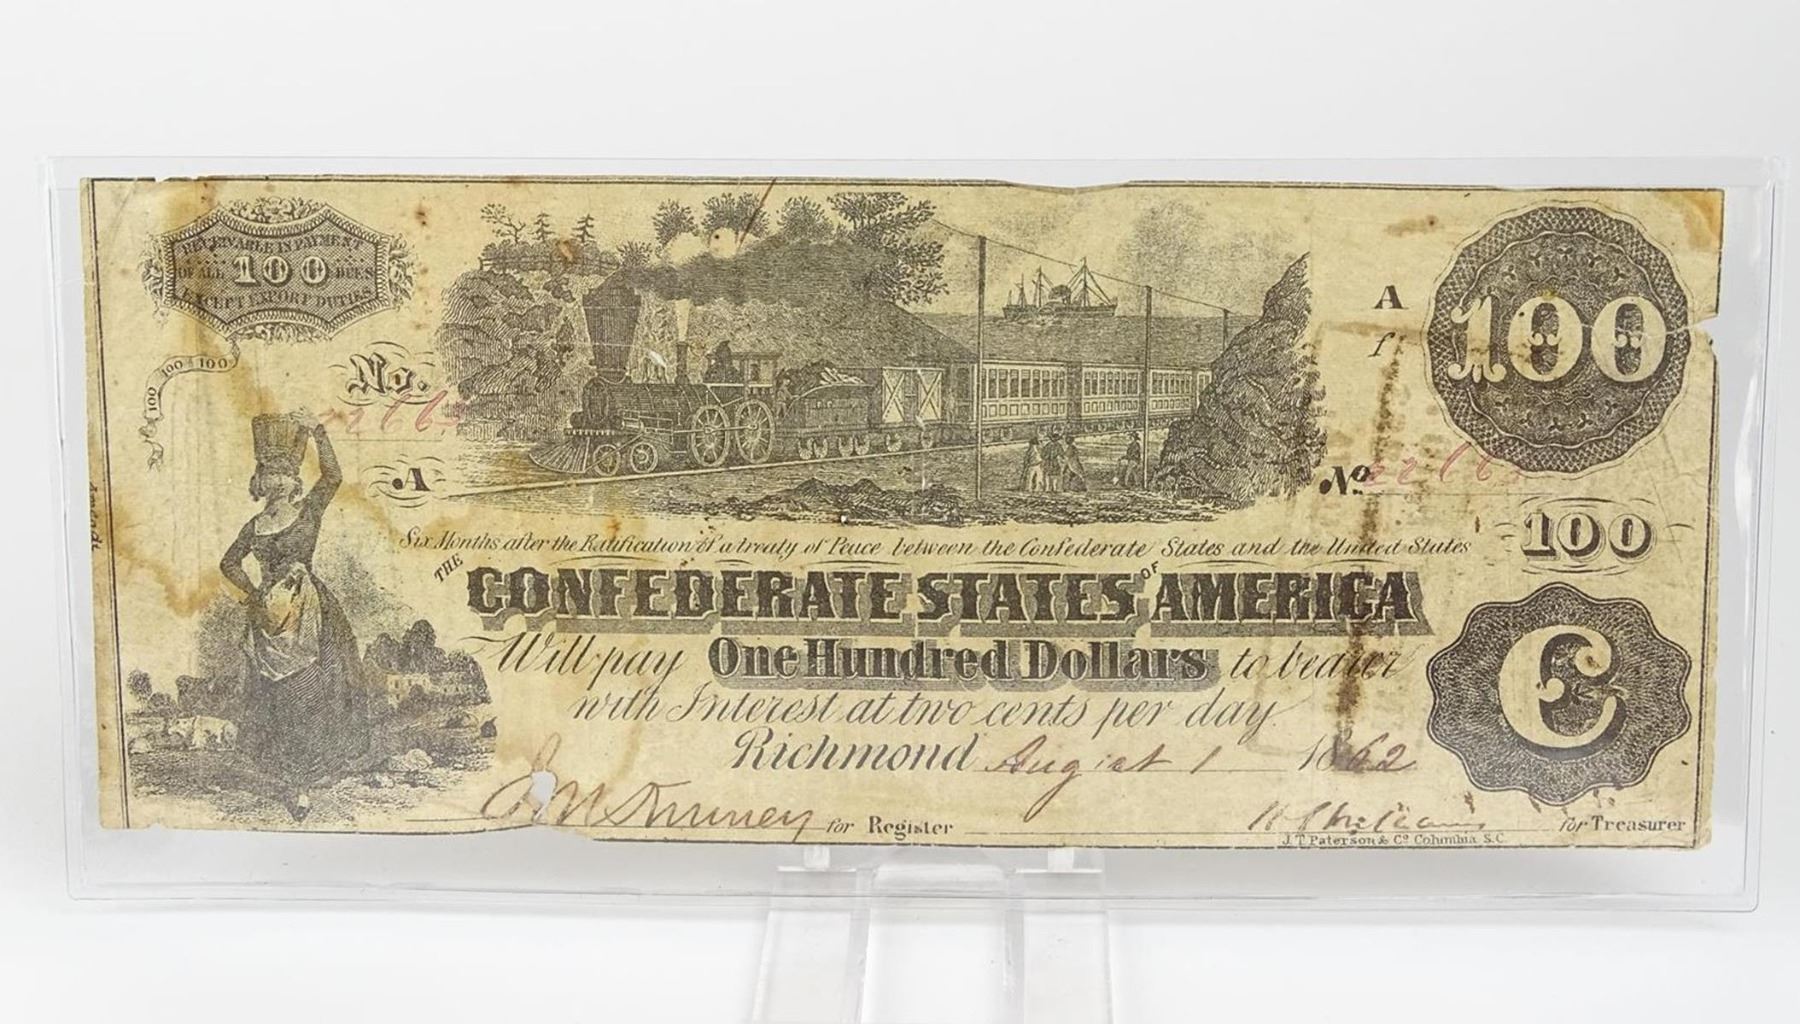 RECEIVABLE IN PAYMENT
OF ALL 100 DUES
EXCEPT EXPORT DUTIES
100 100 100
No.
A
A
100
No
100
Six Months after the Ratification of a treaty of Peace between the Confederate States and the United States
THE CONFEDERATE STATES OF AMERICA
Will pay One Hundred Dollars to bearer
with Interest at two cents per day.
Richmond August 1 1862
C
for Register
for Treasurer
J.T. Paterson & Co. Columbia S.C.